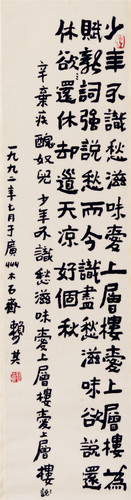 少年不識愁滋味愛上層樓為
賦新詞强說愁而今識盡愁滋味欲說還
休欲還休却道天凉好個秋
辛棄疾醜奴兒少年不識愁滋味愛上層樓愛上層樓說
一九九二年七月于廣州木石齋